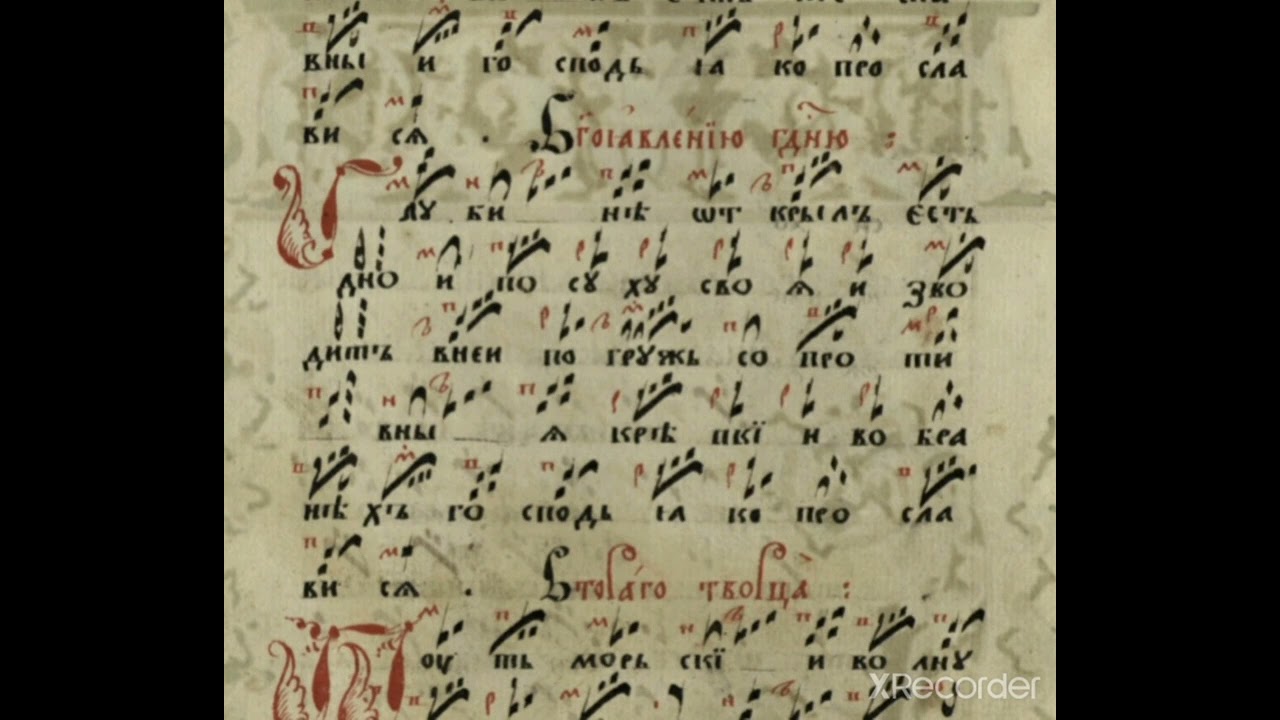 вны и го сподь ꙗ ко про сла
ви сѧ . Бг҃оꙗвле́нїю гдⷭ҇ню :
Глꙋ би нѣ ѿт крылъ єсть
дно и по сꙋ хꙋ сво ѧ и зво
дитъ внеи по грꙋжь со про ти
вны ѧ крѣ пкї и во бра
нѣ хъ го сподь ꙗ ко про сла
ви сѧ . Втора́го творца̀ :
Поу ть морь скї и во лнꙋ
XRecorder